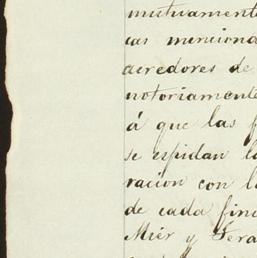 mutuamente
cas menciona
acredores de
notoriamente
á que las f
se espidan la
racion con l
de cada fin
Mier y Tera